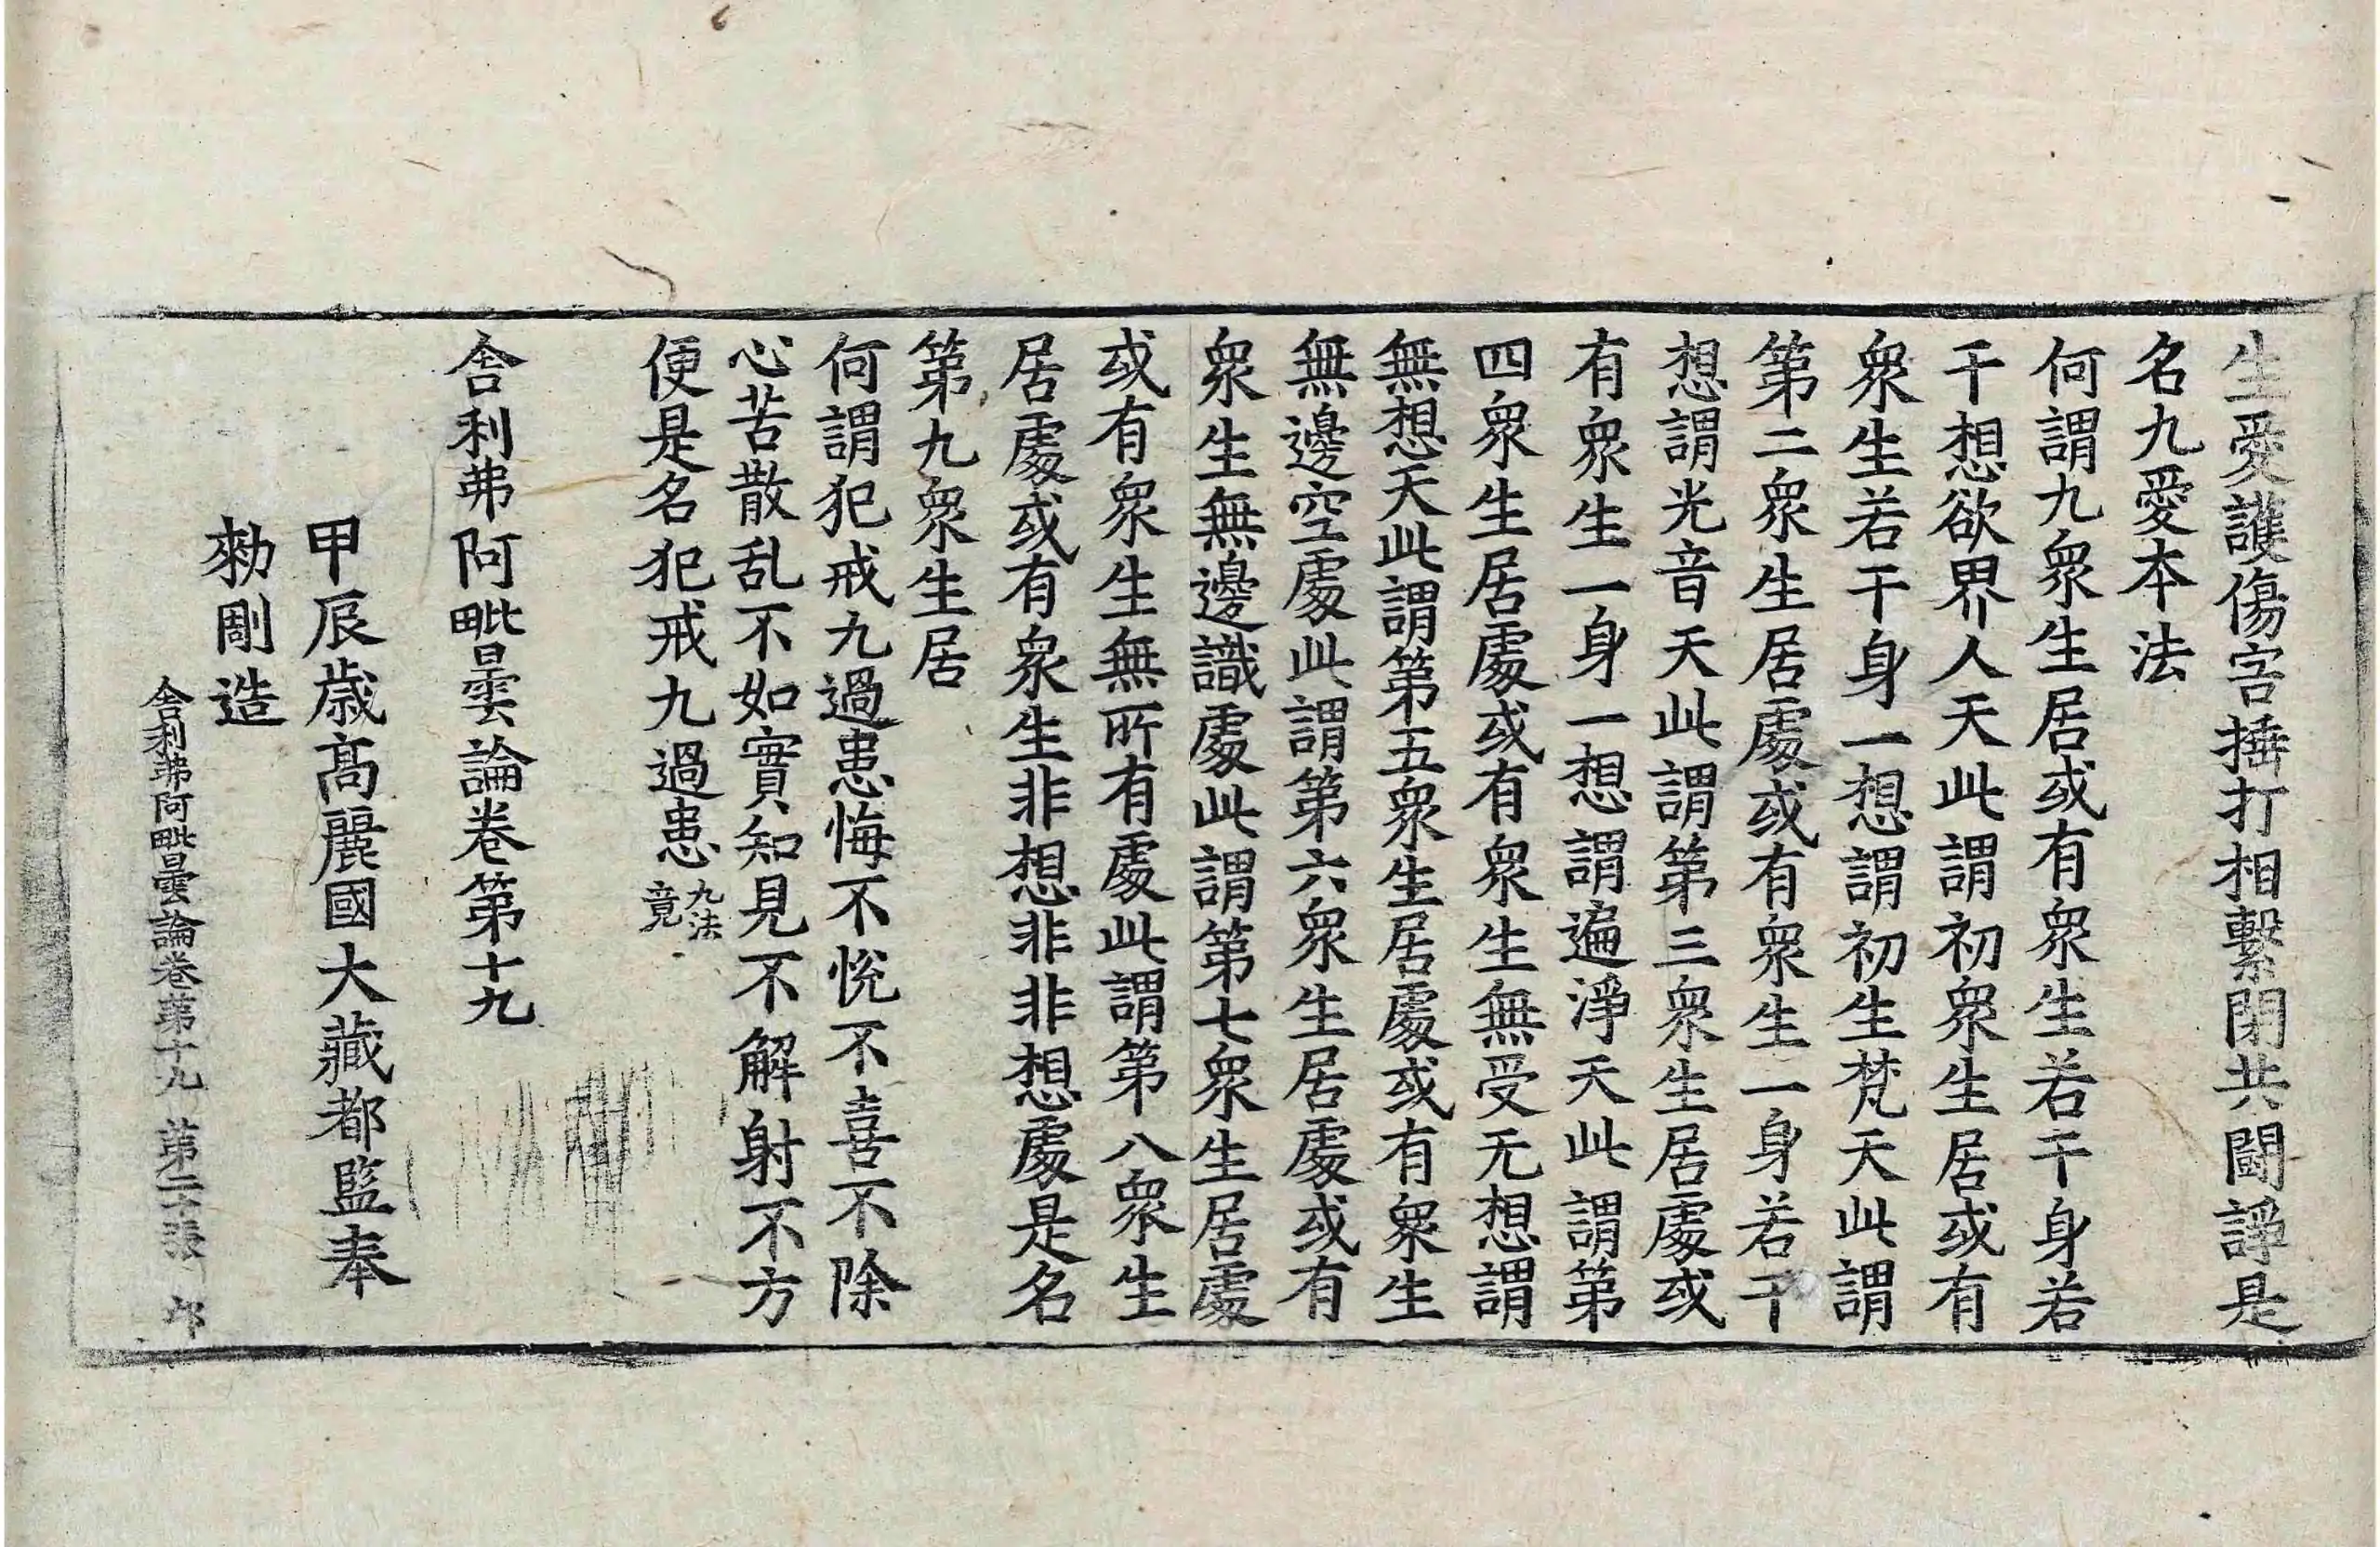 生愛護傷害捶打相繫閉共鬪諍是
名九愛本法
何謂九衆生居或有衆生若干身若
干想欲界人天此謂初衆生居或有
衆生若干身一想謂初生梵天此謂
第二衆生居處或有衆生一身若干
想謂光音天此謂第三衆生居處或
有衆生一身一想謂遍淨天此謂第
四衆生居處或有衆生無受无想謂
無想天此謂第五衆生居處或有衆生
無邊空處此謂第六衆生居處或有
衆生無邊識處此謂第七衆生居處
或有衆生無所有處此謂第八衆生
居處或有衆生非想非非想處是名
第九衆生居
何謂犯戒九過患悔不悅不喜不除
心苦散乱不如實知見不解射不方
便是名犯戒九過患九法竟
舍利弗阿毗曇論卷第十九
甲辰歲高麗國大藏都監奉
勑彫造
舍利弗阿毗曇論卷第十九 第二十張